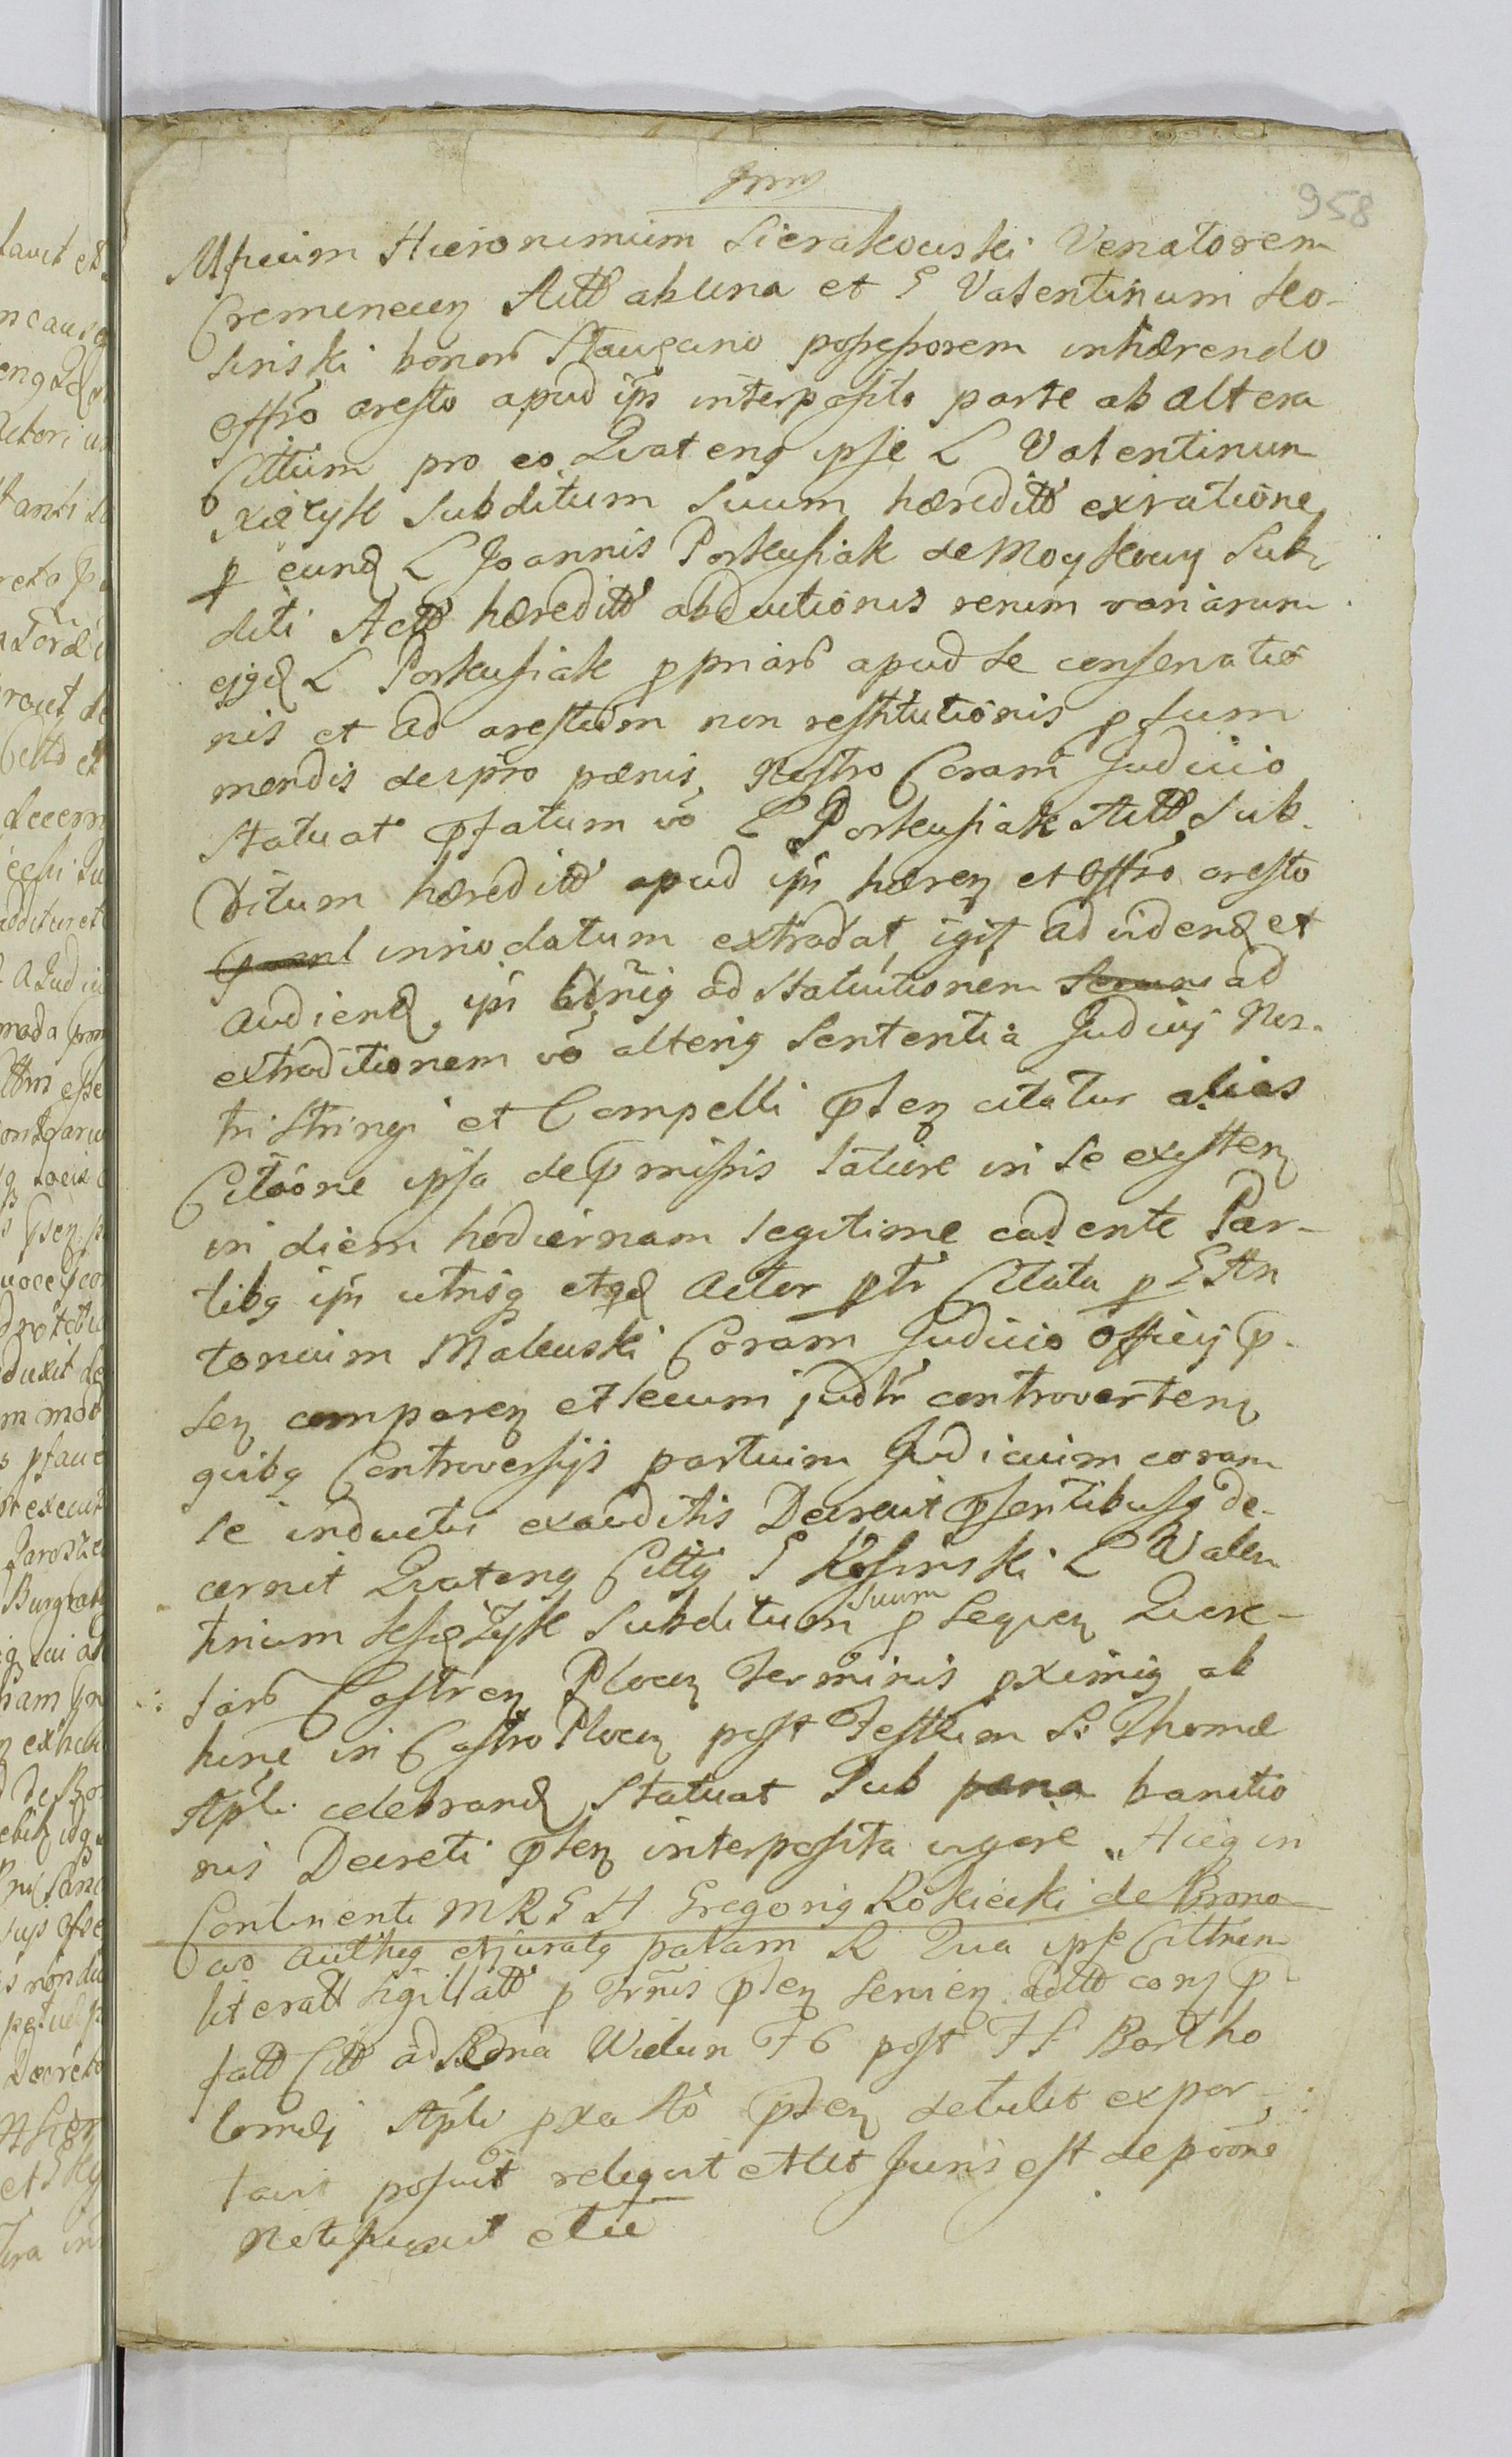 958
Mficum Hieronimum Sierakowski Venatorem
Cremenecen Actt ab una et G Valentinum Ko-
sinski bonor possessorem inhærendo
offio aresto apud ipn interposito parte ab altera
Cittum pro eo Quateng ipse L Valentinum
subditum suum hæreditt ex ratione
p eund L Joannis Porkusiak de Moykowy Sub-
diti Actt hæreditt abductionis rerum variarum
ejgd L Porkusiak ppriar apud se conservatio
nis et ad arestum non restitutionis p sum
mendis de ipso pænis, Nostro Coram Judicio
statuat pfatum vo L Porkusiak Actt Sub-
ditum hæreditt apud ipn hæren et offio aresto
innodatum extradat, igit ad vidend et
audiend, ipn ad statuitionem ad
extraditionem vo alterig sententia Judicij Nos-
tri stringi et Compelli pten citatur alias
Citaone ipsa de pmissis latius in se existen
in diem hodiernam legitime cadente Par-
tibg ipn utrisg etqd Actor ptr Citata p G An
tonium Maleuski Coram Judicio Officij p-
sen comparen et secum judtr controverten,
quibg Controversijs partium Judicium coram
se inductis exauditis Decreuit psentibusq de-
cernit Quateng Cittg G Kosinski L Valen
tinum subditum suum p sequen Quere-
lar Castren Plocen Terminis pximig ab
hinc in Castro Plocen post Festum S: Thomæ
Apli celebrand, Statuat Sub pæna banitio
nis Decreti pten interposita vigore „ Hicg in
Continenti M R G H Gregorig Rokicki de Brono
uo authg et juratg palam R Quia ipse Cittnem
literatt sigillatt p Trnis pten servien actt cors p
fatt Citt ad Bona Wielun F 6 post F S Bartho
lomæj Apli pxa tto pten detulit expor-
tavit posuit reliquit et ut Juris est de poõne
Notificavit etia